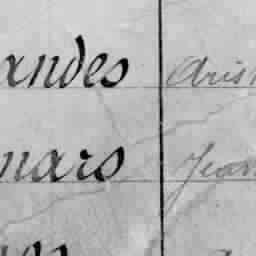 andes Aris
mars Jean